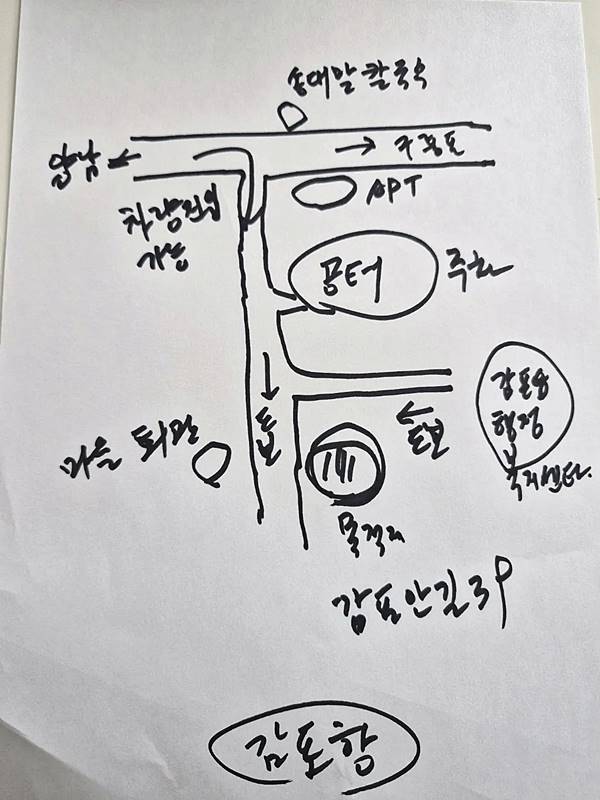 송대말 칼국수
양남 ← → 구룡포
APT
차량진입
가능
공터 주차
감포읍
행정
복지센터
도보
도보
마을 회관
목적지
감포안길 39
감포항